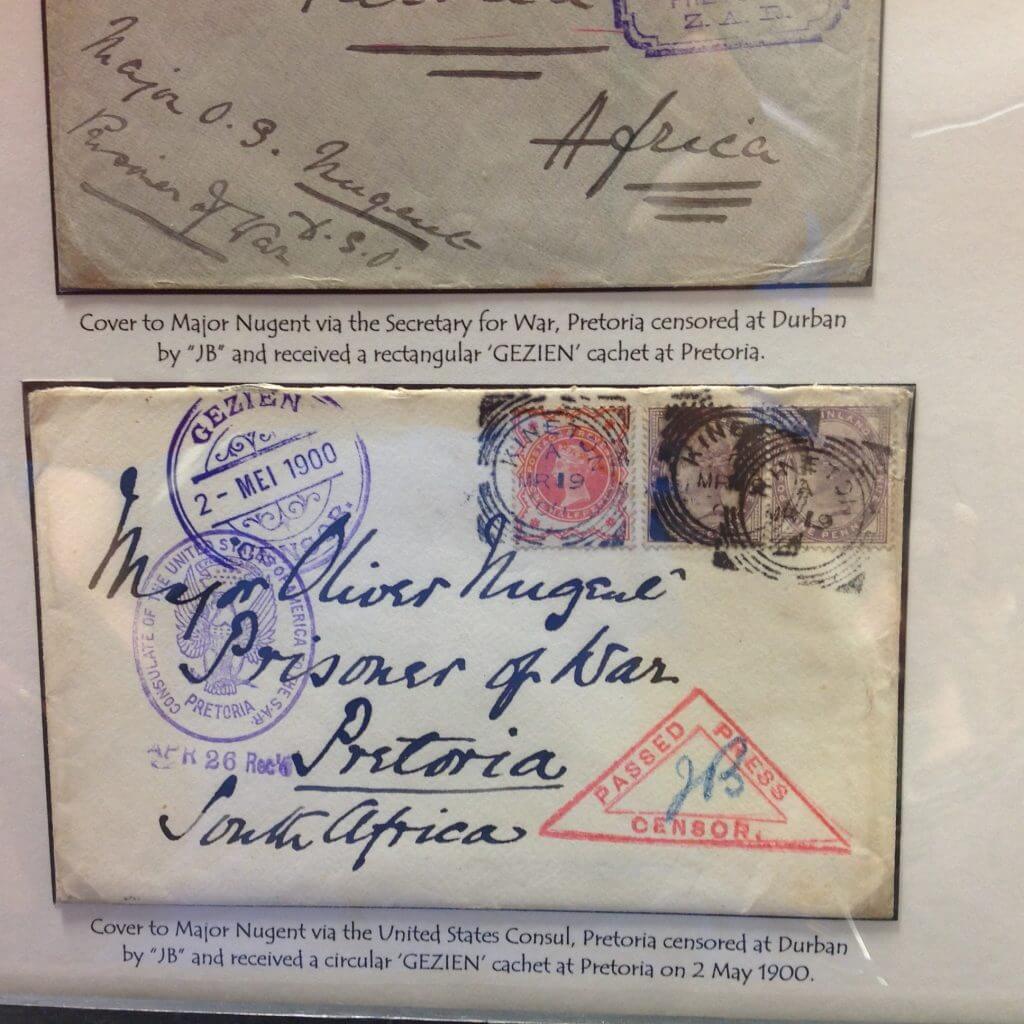 Z.A.R.
Africa
Major O. S. Nugent
D.S.O.
Prisoner of War
Cover to Major Nugent via the Secretary for War, Pretoria censored at Durban
by “JB” and received a rectangular ‘GEZIEN’ cachet at Pretoria.
GEZIEN
2 - MEI 1900
KINETON
A
MR 19
KINETON
MR
KINETON
A
MR 19
CONSULATE OF THE UNITED STATES OF AMERICA
S.A.R.
PRETORIA
APR 26 Rec'd
Major Oliver Nugent
Prisoner of War
Pretoria
South Africa
PASSED PRESS
CENSOR.
JB
Cover to Major Nugent via the United States Consul, Pretoria censored at Durban
by “JB” and received a circular ‘GEZIEN’ cachet at Pretoria on 2 May 1900.